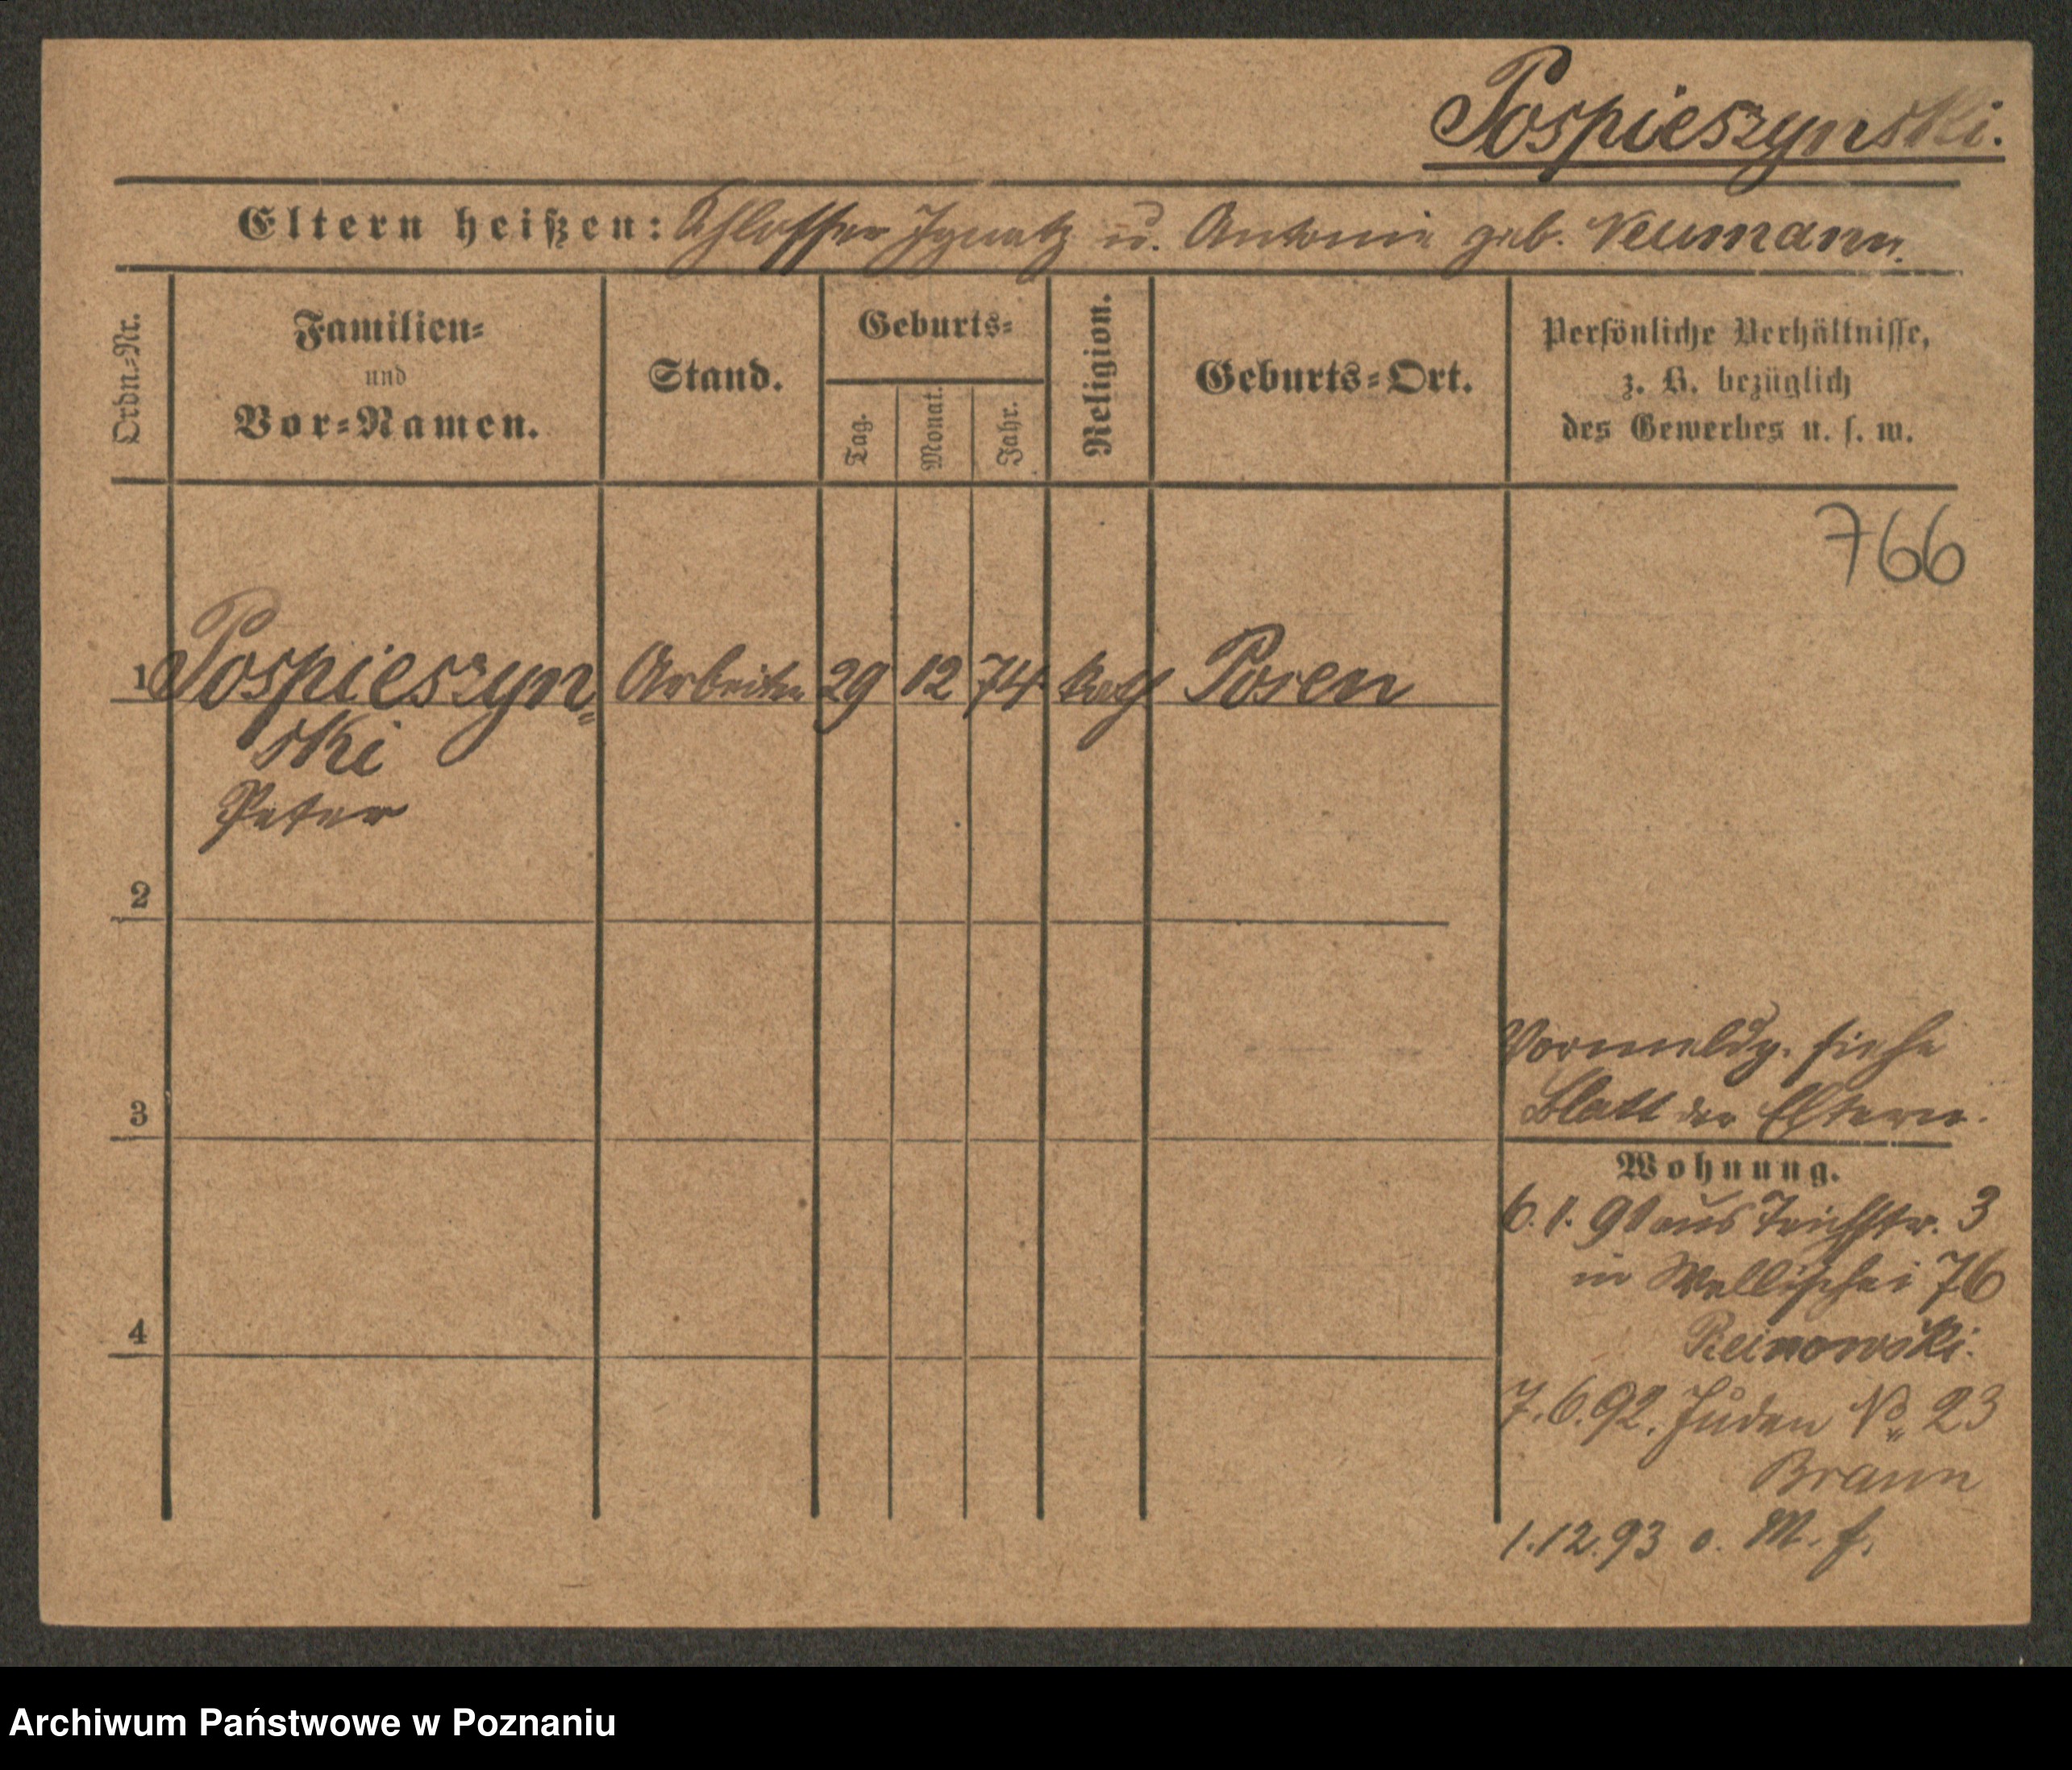 Pospieszynski.
Eltern heißen: Schlosser Ignatz u. Antonie geb. Neumann.
Ordn.-Nr.
Familien-
und
Vor-Namen.
Stand.
Geburts-
Tag.
Monat.
Jahr.
Religion.
Geburts-Ort.
Persönliche Verhältnisse,
z. B. bezüglich
des Gewerbes u. s. w.
766
1 Pospieszyn- Arbeiter 29 12 74 kath Posen
ski
Peter
2
Vormeldg. siehe
3 Blatt der Eltern.
Wohnung.
6.1.91 aus Teichstr. 3
in Wallischei 76
4
7.6.92. Juden No 23
Braun
1.12.93 o. M. f.
Archiwum Państwowe w Poznaniu